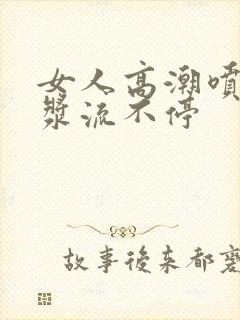 女人高潮噴
漿流不停
故事後来都